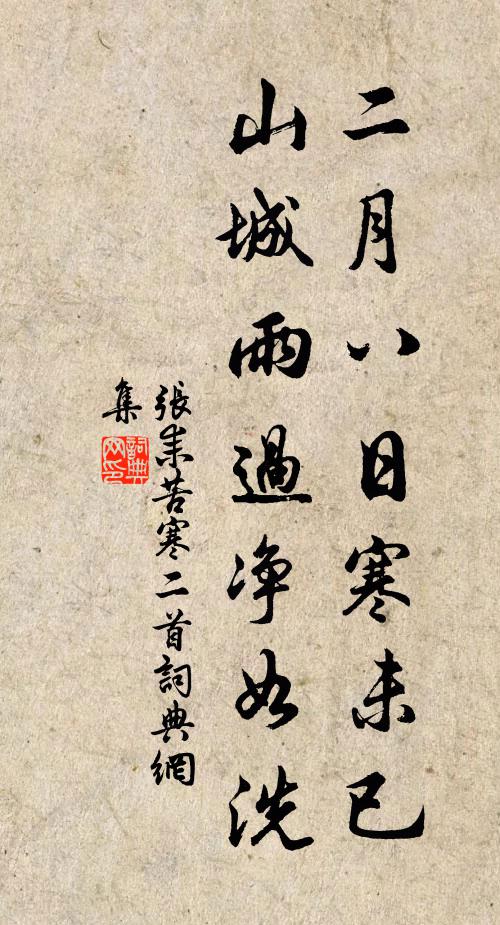 二月八日寒未已
山城雨過净如洗
張耒苦寒二首詞典網
集
詞典網印